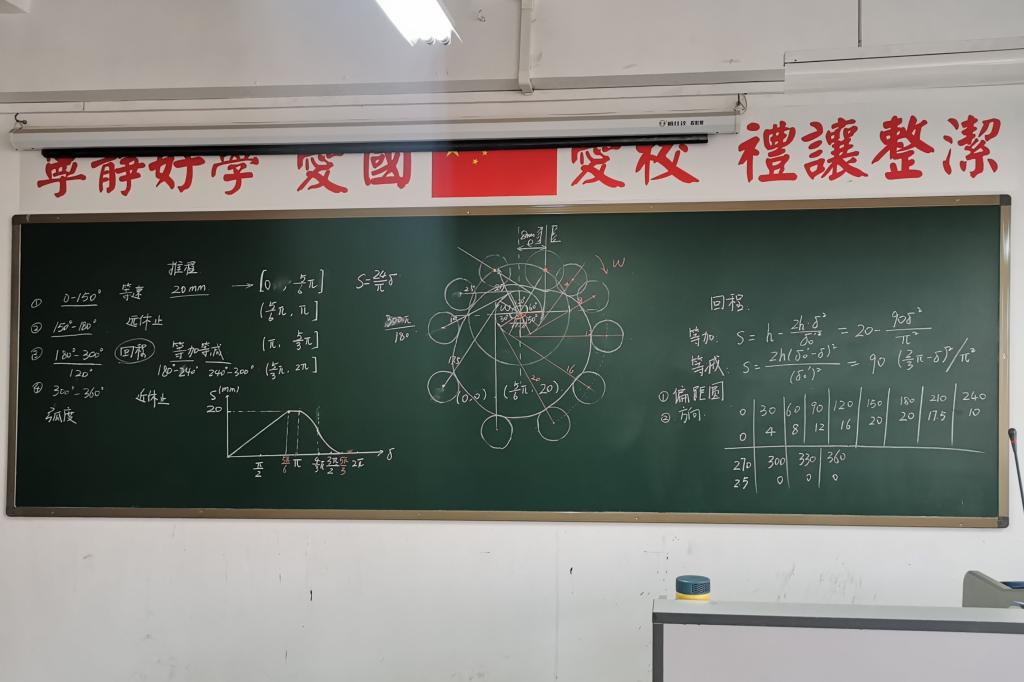 寧靜好學 愛國 愛校 禮讓整潔
推程
① 0-150° 等速 20mm → [0, 5/6π] S=24/π δ
② 150°-180° 远休止 (5/6π, π]
③ 180°-300° 回程 等加等减 (π, 5/3π]
120° 180°-240° 240°-300°
④ 300°-360° 近休止 (5/3π, 2π]
弧度
S(mm)
20
π/2 5π/6 π 4/3π 3π/2 5π/3 2π δ
300π/180°
ω
(0,0) (5/6π, 20)
20
16
回程:
等加: S = h - 2h·δ²/δ₀'² = 20 - 90δ²/π²
等减: S = 2h(δ₀'-δ)²/(δ₀')² = 90 (2/3π-δ)²/π²
① 偏距圆
② 方向.
0 30 60 90 120 150 180 210 240
0 4 8 12 16 20 20 17.5 10
270 300 330 360
2.5 0 0 0